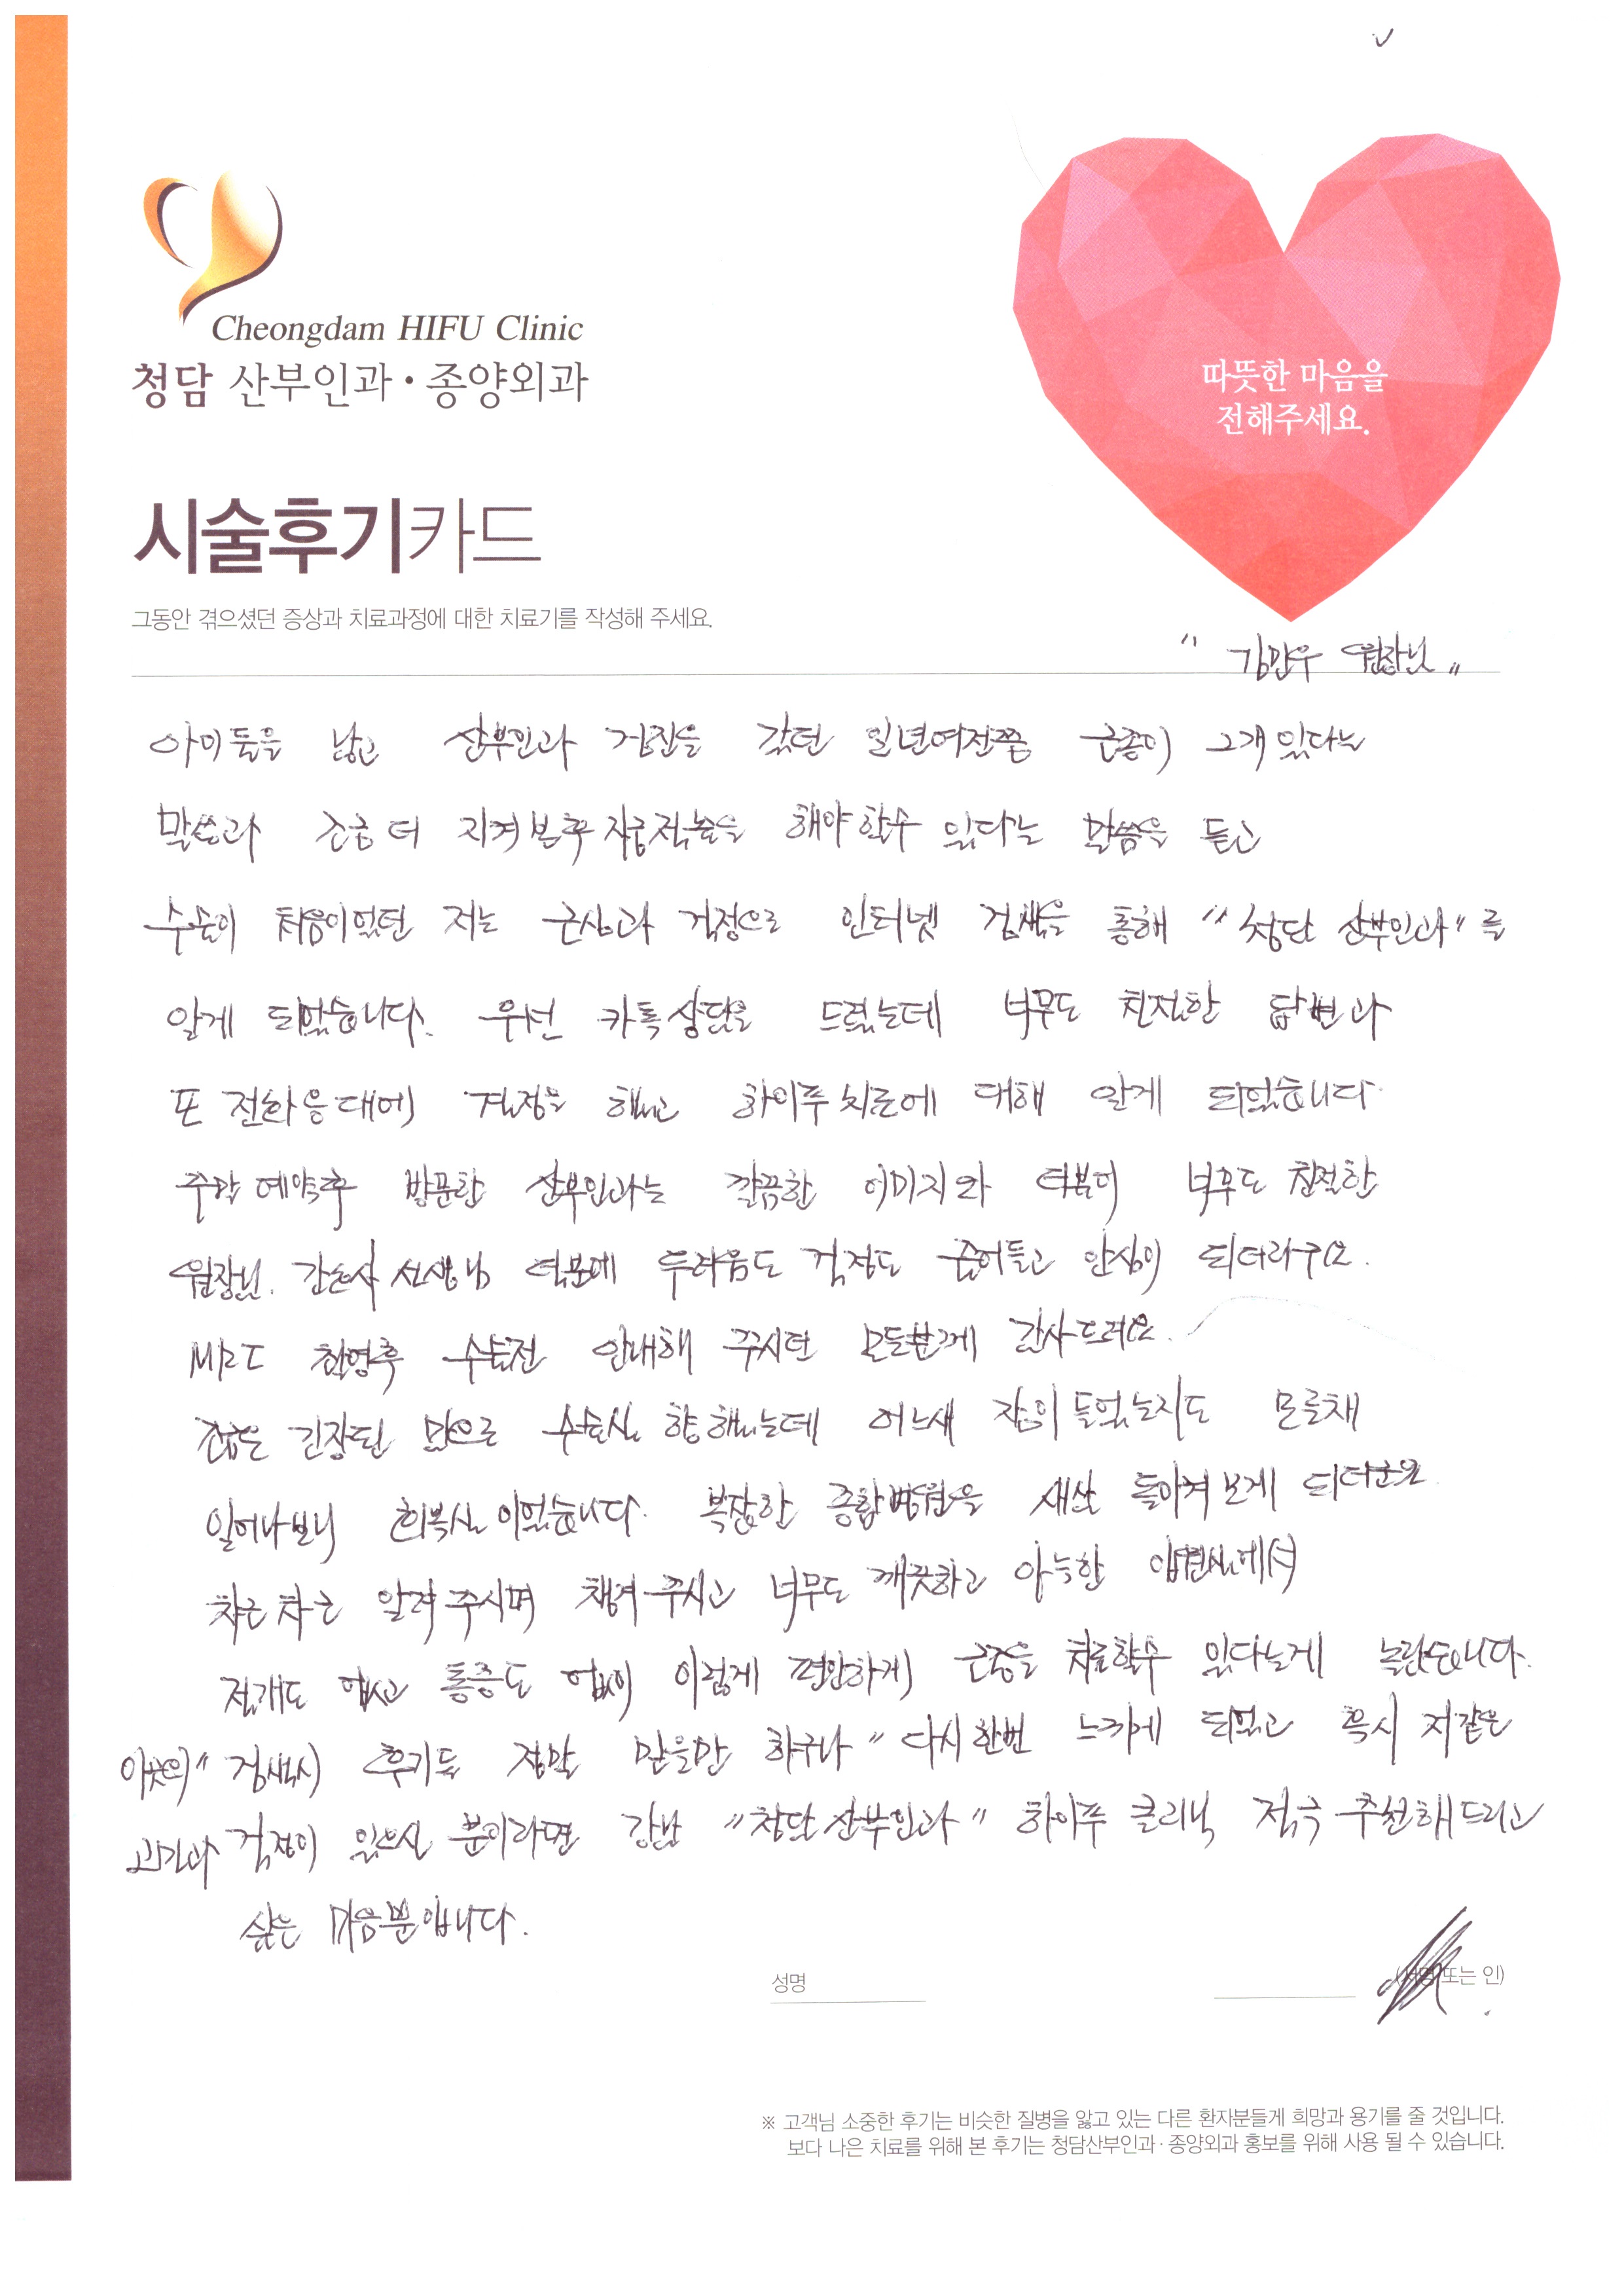 Cheongdam HIFU Clinic
청담 산부인과·종양외과
따뜻한 마음을
전해주세요.
시술후기카드
그동안 겪으셨던 증상과 치료과정에 대한 치료기를 작성해 주세요.
" 김민우 원장님 "
아이들을 낳고 산부인과 검진을 갔던 일년여전쯤 근종이 2개 있다는
말씀과 조금 더 지켜본후 자궁적출을 해야 할수 있다는 말씀을 듣고
수술이 처음이었던 저는 근심과 걱정으로 인터넷 검색을 통해 "청담 산부인과"를
알게 되었습니다. 우선 카톡상담을 드렸는데 너무도 친절한 답변과
또 전화응대에 결정을 했고 하이푸치료에 대해 알게 되었습니다
주말 예약후 방문한 산부인과는 깔끔한 이미지와 더불어 너무도 친절한
원장님. 간호사 선생님 덕분에 두려움도 걱정도 줄어들고 안심이 되더라구요.
MRI 촬영후 수술전 안내해 주시던 모든분께 감사드려요.
조금은 긴장된 맘으로 수술실 향했는데 어느새 잠이 들었는지도 모를채
일어나보니 회복실이었습니다. 복잡한 종합병원을 새삼 돌아켜보게 되더군요.
차근차근 알려주시며 챙겨주시고 너무도 깨끗하고 아늑한 입원실에서
절개도 없고 통증도 없이 이렇게 편안하게 근종을 치료할수 있다는게 놀랍습니다.
" 검색시 후기들 정말 믿을만 하구나 " 다시한번 느끼게 되었고 혹시 저같은
고민과 걱정이 있으신 분이라면 강남 "청담산부인과" 하이푸 클리닉 적극 추천해드리고
싶은 마음뿐입니다.
성명 (서명 또는 인)
※ 고객님 소중한 후기는 비슷한 질병을 앓고 있는 다른 환자분들게 희망과 용기를 줄 것입니다.
보다 나은 치료를 위해 본 후기는 청담산부인과·종양외과 홍보를 위해 사용 될 수 있습니다.